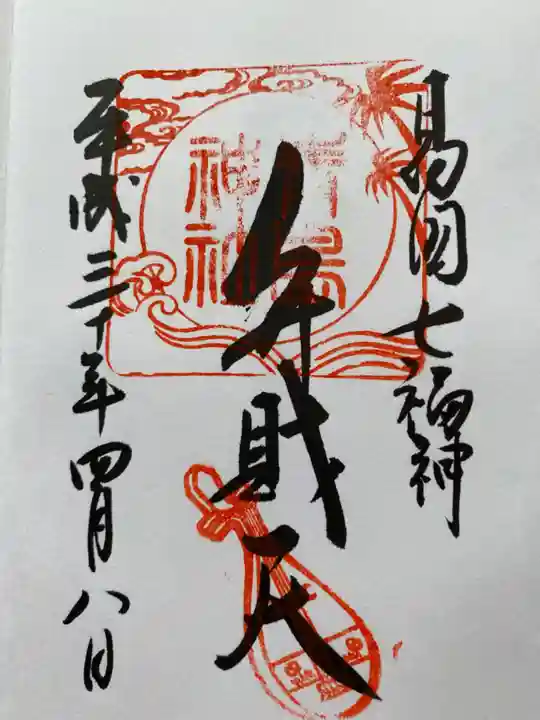 日向国七福神
青島
神社
弁財天
平成三十年四月八日